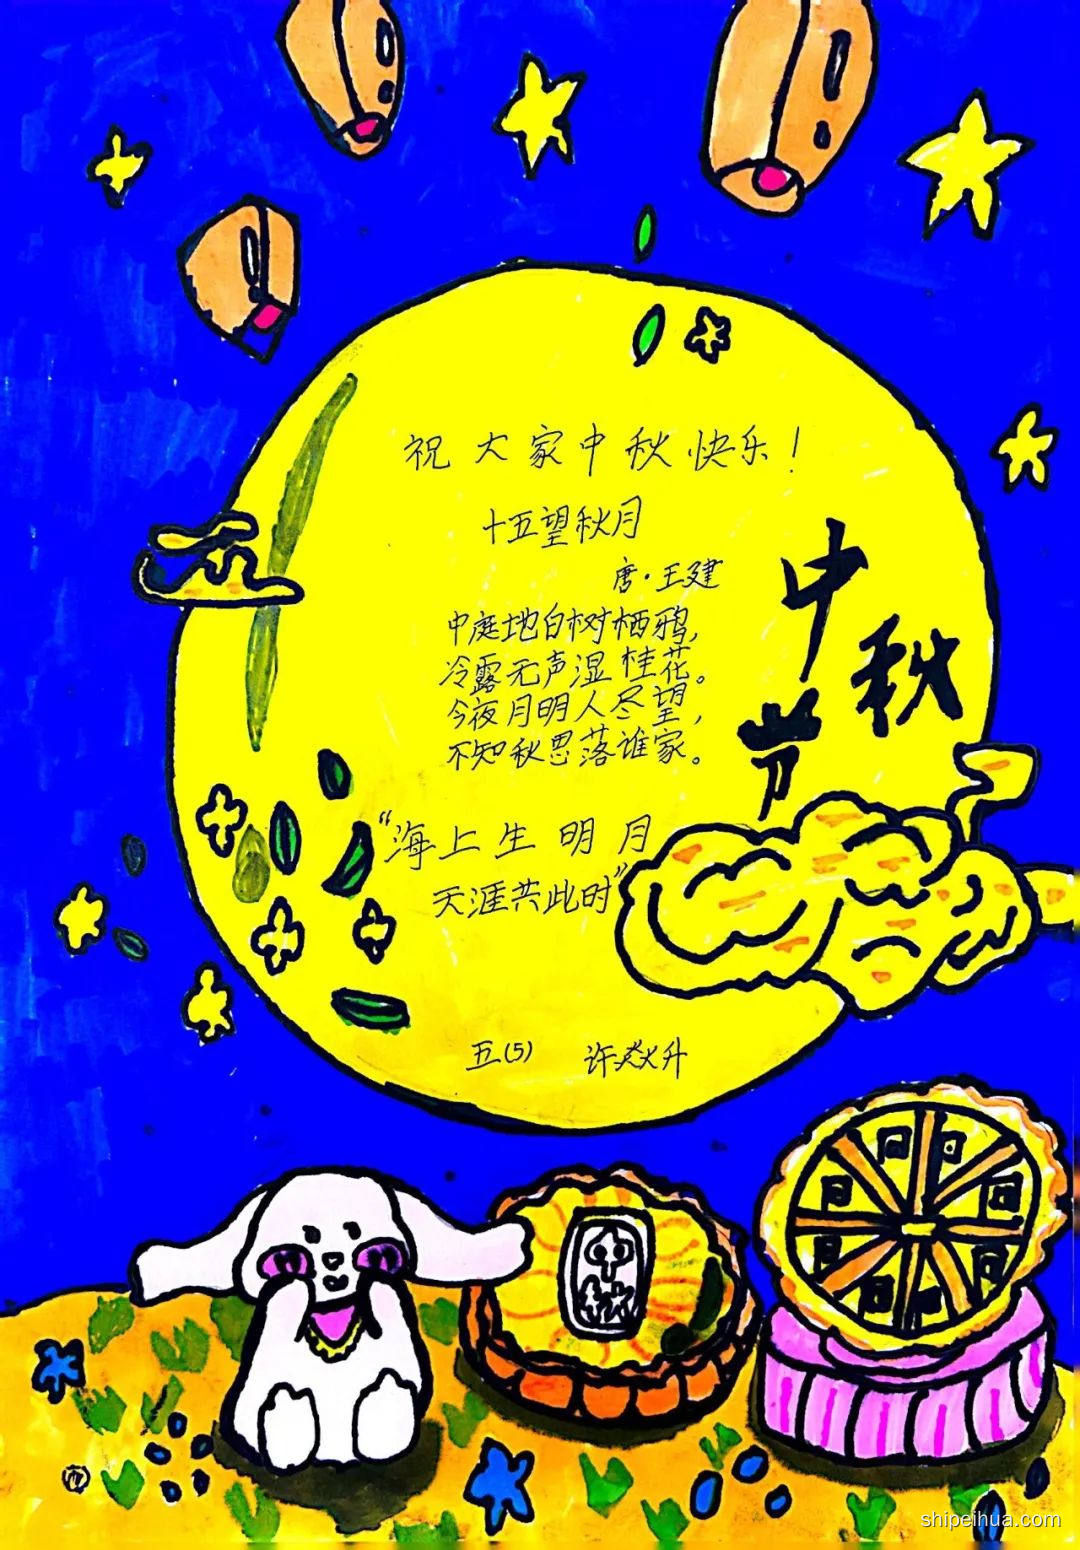 祝大家中秋快乐！
十五望秋月
唐·王建
中庭地白树栖鸦，
冷露无声湿桂花。
今夜月明人尽望，
不知秋思落谁家。
“海上生明月
天涯共此时”
中秋节
五(5) 许焱升
中秋
shipeihua.com